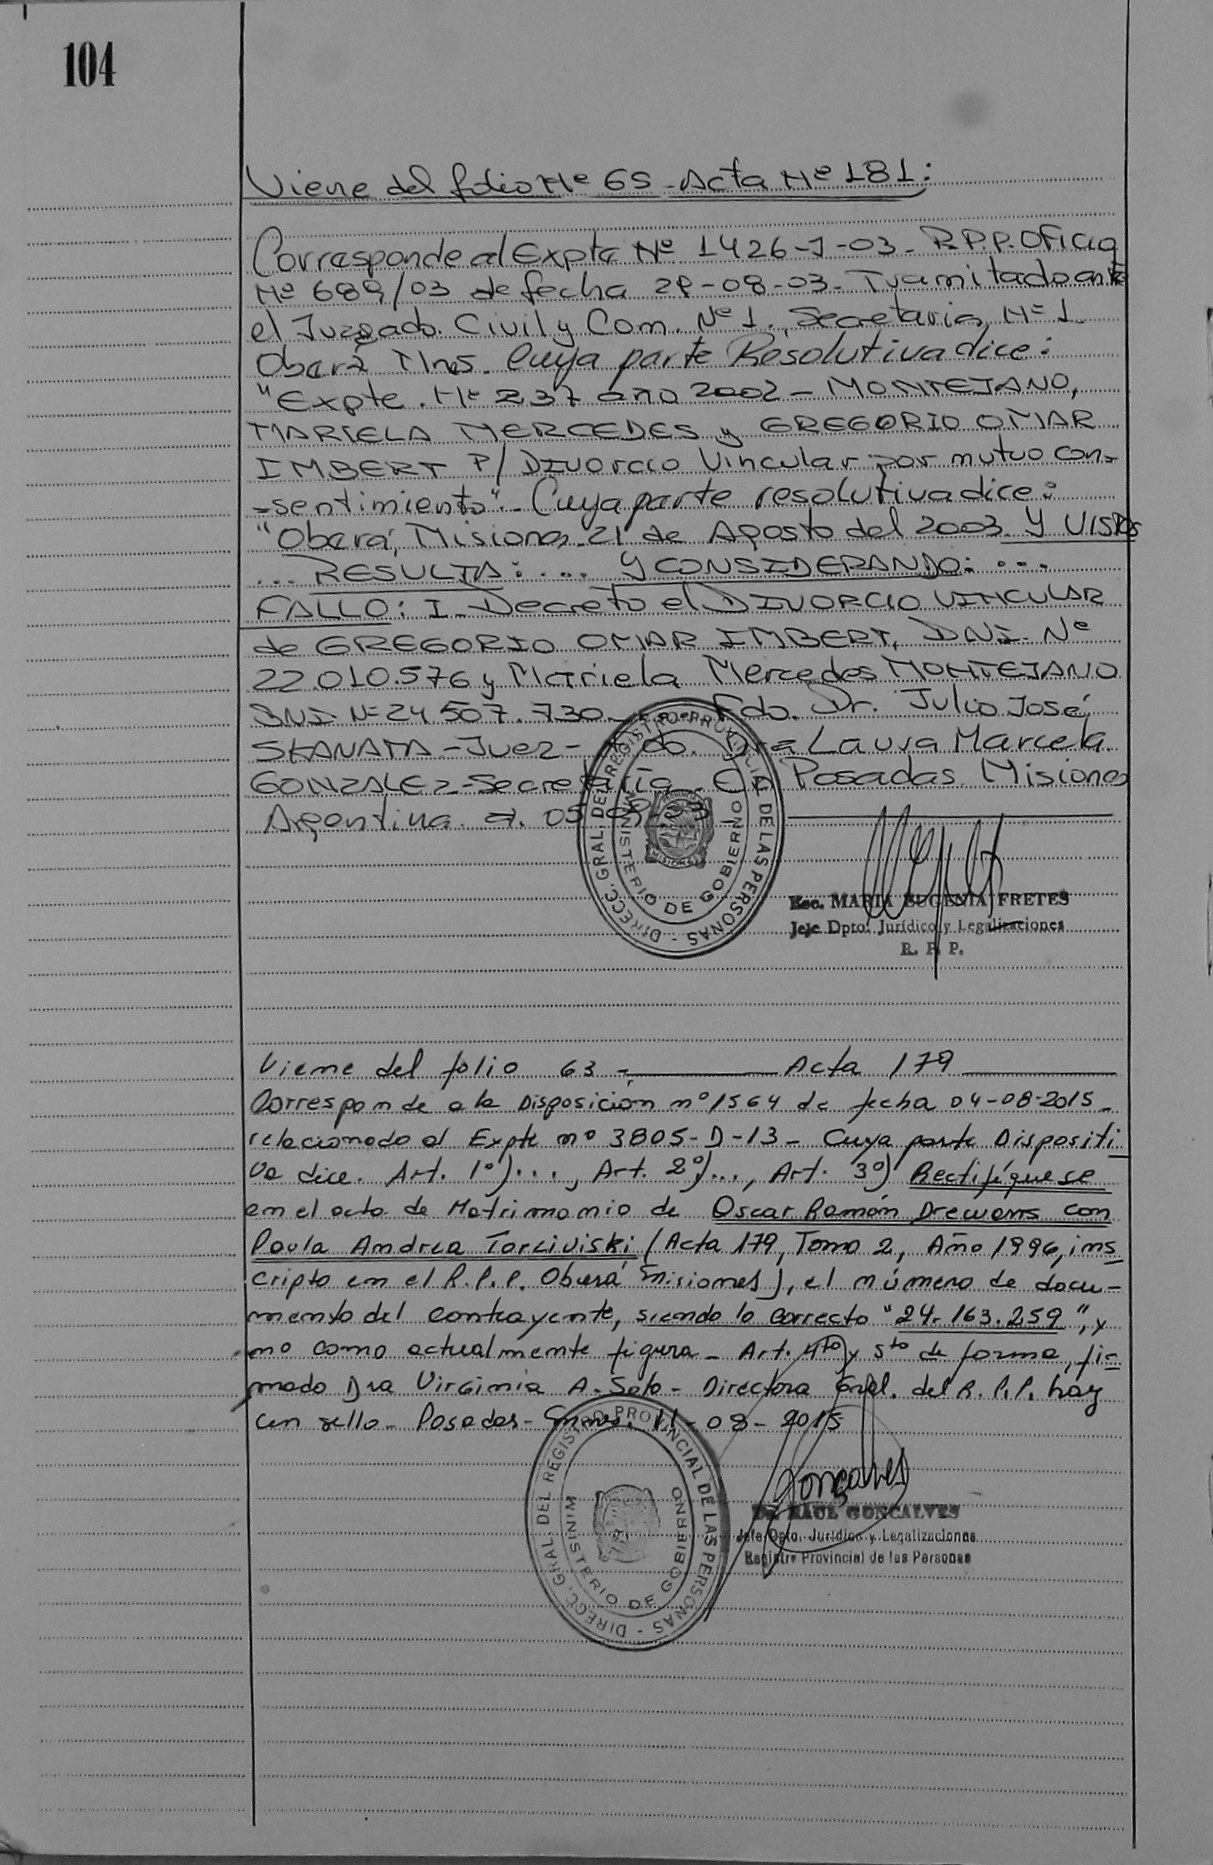 104
Viene del folio Nº 65 - Acta Nº 181:
Corresponde al Expte Nº 1426-J-03- R.P.P. Oficio
Nº 689/03 de fecha 29-08-03- Tramitado ante
el Juzgado Civil y Com. Nº 1., Secretaria, Nº 1
Oberá Mnes. Cuya parte Resolutiva dice:
"Expte. Nº 237 año 2002 - MONTEJANO,
MARIELA MERCEDES y GREGORIO OMAR
IMBERT P/ Divorcio Vincular por mutuo con-
-sentimiento". Cuya parte resolutiva dice:
"Oberá, Misiones 21 de Agosto del 2003. Y VISTOS
... RESULTA: ... Y CONSIDERANDO: ...
FALLO: I- Decreto el DIVORCIO VINCULAR
de GREGORIO OMAR IMBERT, DNI. Nº
22.010.576 y Mariela Mercedes MONTEJANO
DNI Nº 24.507.730 Fdo. Dr. Julio José
SKANATA - Juez - Fdo. Dra Laura Marcela
GONZALEZ - Secretaria. En Posadas Misiones
Argentina a. 05
DIRECC. GRAL. DEL REGISTRO PROVINCIAL DE LAS PERSONAS -
MINISTERIO DE GOBIERNO
MISIONES
Esc. MARIA EUGENIA FRETES
Jefe Dpto. Jurídico y Legalizaciones
R. P. P.
Viene del folio 63 - Acta 179
Corresponde a la Disposicion nº 1564 de fecha 04-08-2015-
relacionado al Expte nº 3805-D-13- Cuya parte Dispositi
va dice. Art. 1º)..., Art. 2º)..., Art. 3º) Rectifíquese
en el acta de Matrimonio de Oscar Ramón Drewens con
Paula Andrea Torciviski (Acta 179, Tomo 2, Año 1996, ins
cripto en el R.P.P. Oberá Misiones), el número de docu-
mento del contrayente, siendo lo correcto "24.163.259", y
no como actualmente figura - Art. 4to y 5to de forma, fir
mado Dra Virginia A. Soto - Directora Gral. del R.P.P. hay
un sello - Posadas - Mnes. 11-08-2015
DIRECC. GRAL. DEL REGISTRO PROVINCIAL DE LAS PERSONAS -
MINISTERIO DE GOBIERNO
Goncalves
Dr. RAUL GONCALVES
Jefe Dpto. Jurídico y Legalizaciones
Registro Provincial de las Personas